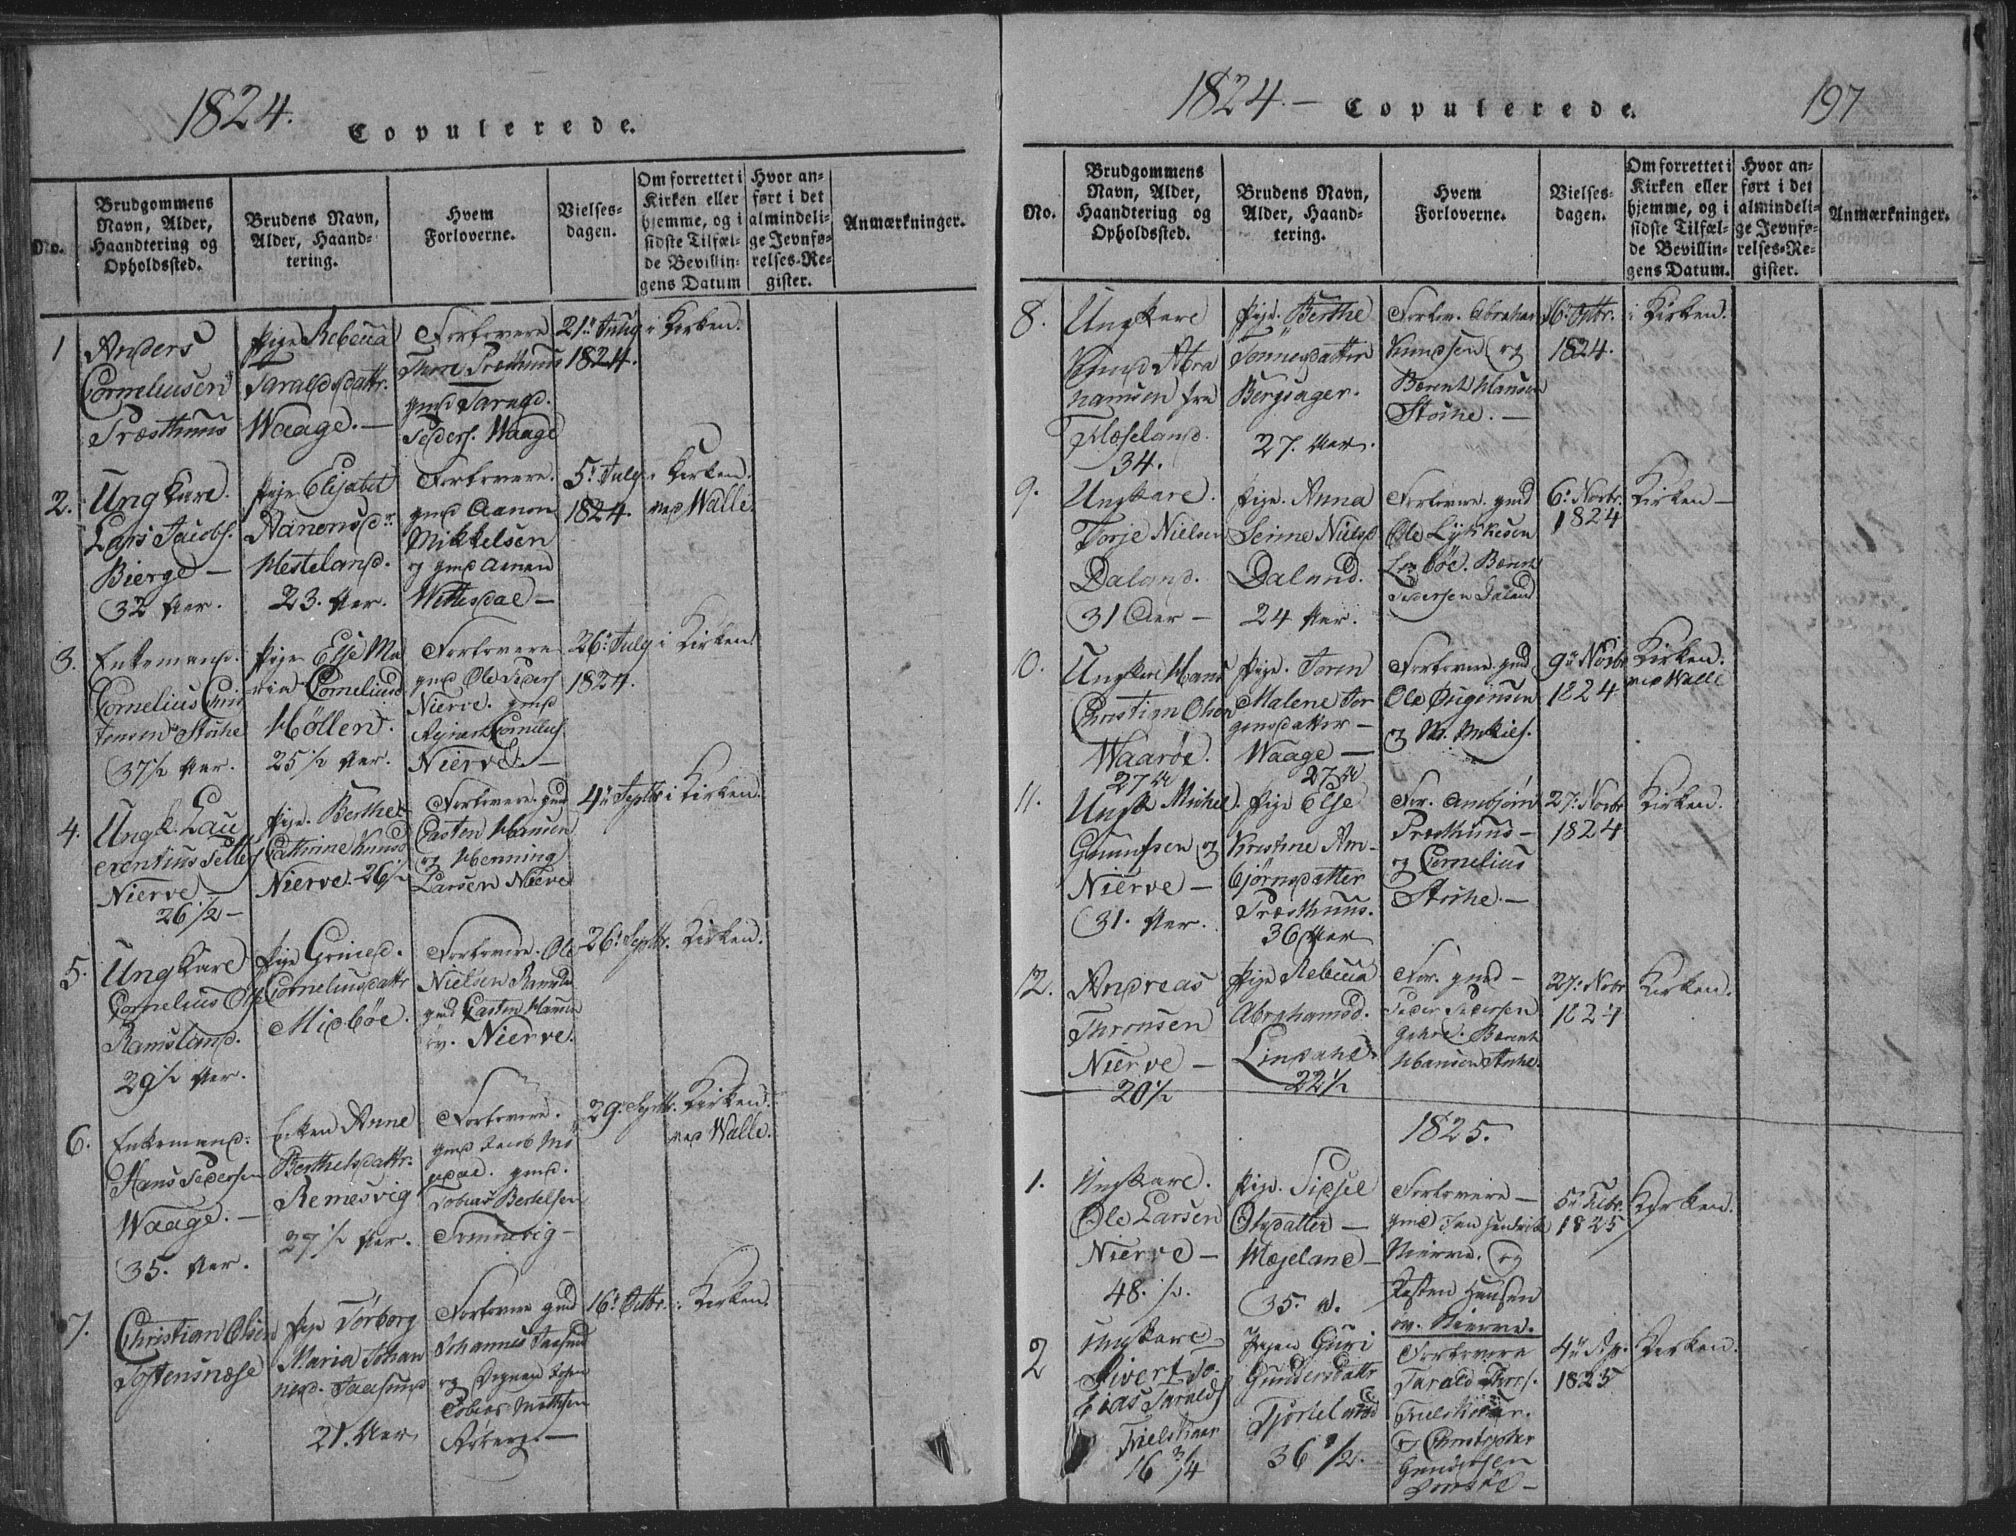 1824.
Copulerede.
No.
Brudgommens
Navn, Alder,
Haandtering og
Opholdssted.
Brudens Navn,
Alder, Haand-
tering.
Hvem
Forloverne.
Vielses-
dagen.
Om forrettet i
Kirken eller
hjemme, og i
sidste Tilfæl-
de Bevillin-
gens Datum
Hvor an-
ført i det
almindeli-
ge Jevnfø-
relses-Re-
gister.
Anmærkninger.
1
Anders
Corneliusen
Præsthuus
Pige Rebecca
Taraldsdattr.
Waage. —
Forlovere
Thore Præsthuus
gmd Tarald.
Peders. Waage
21. July
1824.
i Kirken.
2.
Ungkarl.
Lars Jacobs.
Bierge —
32 Aar.
Pige Elisabet
Aanonsdr.
Hesteland.
23. Aar.
Forlovere.
gmd Aanon
Mikkelsen
og gmd Aanen
Wittesdal —
5. July
1824.
i Kirken.
ved Walle.
3.
Enkemand.
Cornelius Chris
tensen Støhe
37½ Aar.
Pige Else Ma
ria Corneliusd
Høllen.
25½ Aar.
Forlovere
gmd Ole Peders
Nierve. gmd
Nierve. —
26. July
1824.
i Kirken.
4.
Ungk. Lau
rentius
Nierve
26½ —
Pige. Berthe
Cathrine Knusd
Nierve. 26½
Forlovere. gmd
Casten Hansen
og Henning
Larsen Nierve
4. Septbr
i Kirken.
5.
Ungkarl
Cornelius Ols.
Ramsland.
29½ Aar.
Pige Grined.
Corneliusdattr
Midbøe.
Forlovere. Ole
Nielsen
gmd Casten Hansen
Nierve.
26. Septbr.
Kirken.
6.
Enkemand.
Hans Pedersen
Waage. —
35. Aar.
Enken Anne
Berthelsdattr.
Remesvig
27½ Aar.
Forlovere.
gmd Jacob
gmd.
Tobias Bertelsen
29. Septbr.
Kirken.
ved Walle.
7.
Christian Olsen
Tostensnæse
Pige Torborg
Maria Johan
nesd.
21. Aar
Forlovere gmd
Johannes
og
Tobias
16. Octbr.
i Kirken.
1824. —
Copulerede.
197
No.
Brudgommens
Navn, Alder,
Haandtering og
Opholdssted.
Brudens Navn,
Alder, Haand-
tering.
Hvem
Forloverne.
Vielses-
dagen.
Om forrettet i
Kirken eller
hjemme, og i
sidste Tilfæl-
de Bevillin-
gens Datum.
Hvor an-
ført i det
almindeli-
ge Jevnfø-
relses-Re-
gister.
Anmærkninger.
8.
Ungkarl
Knud Abra
hamsen fra
Floseland.
34.
Pige. Berthe
Tønnesdatter
Bergsager.
27. Aar.
Forlov. Abraham
Knudsen og
Bærent Hansen
Støhe. —
1824.
i Kirken.
9.
Ungkarl.
Torje Nielsen
Daland.
31 Aar —
Pige. Anna
Serine Nielsd
Daland.
24 Aar.
Forlovere. gmd
Ole Lykkesen
Bærent
Pedersen Daland
6. Novbr.
1824
Kirken —
10.
Ungkarl Hans
Christian Olsen
Waarøe.
27
Pige. Toren
Malene Tor
gensdatter —
Waage —
27
Forlovere. gmd
Ole Jørgensen
og
9. Novbr
1824
Kirken.
ved Walle
11.
Ungk Michel
Nierve —
31. Aar.
Pige Else
Kristine Am-
bjørnsdatter
Præsthuus.
36 Aar
For. Ambjørn
Præsthuus —
og Cornelius
Støhe. —
27. Novbr
1824
Kirken.
12.
Andreas
Thronsen
Nierve —
20½
Pige Rebecca
Abrahamsd.
Lindahl
22½
For. gmd —
Peder Pedersen
Bærent
Hansen Støhe.
27. Novbr
1824
Kirken.
1825.
1.
Ungkarl.
Ole Larsen
Nierve —
48. ½.
Pige. Sidsel
Olsdatter —
Mæseland —
35. A.
Forlovere —
gmd Jan Hendrik
Nierve. og
Kasten Hansen
Nierve.
5 Febr.
1825
Kirken.
2
Ungkarl
Sivert To-
bias Taralds
16 3/4
Pigen Guri
Gundersdattr
36 ½.
Forlovere
Tarald Thors.
og Christopher
Gundersen
4. Ap.
1825
Kirken.